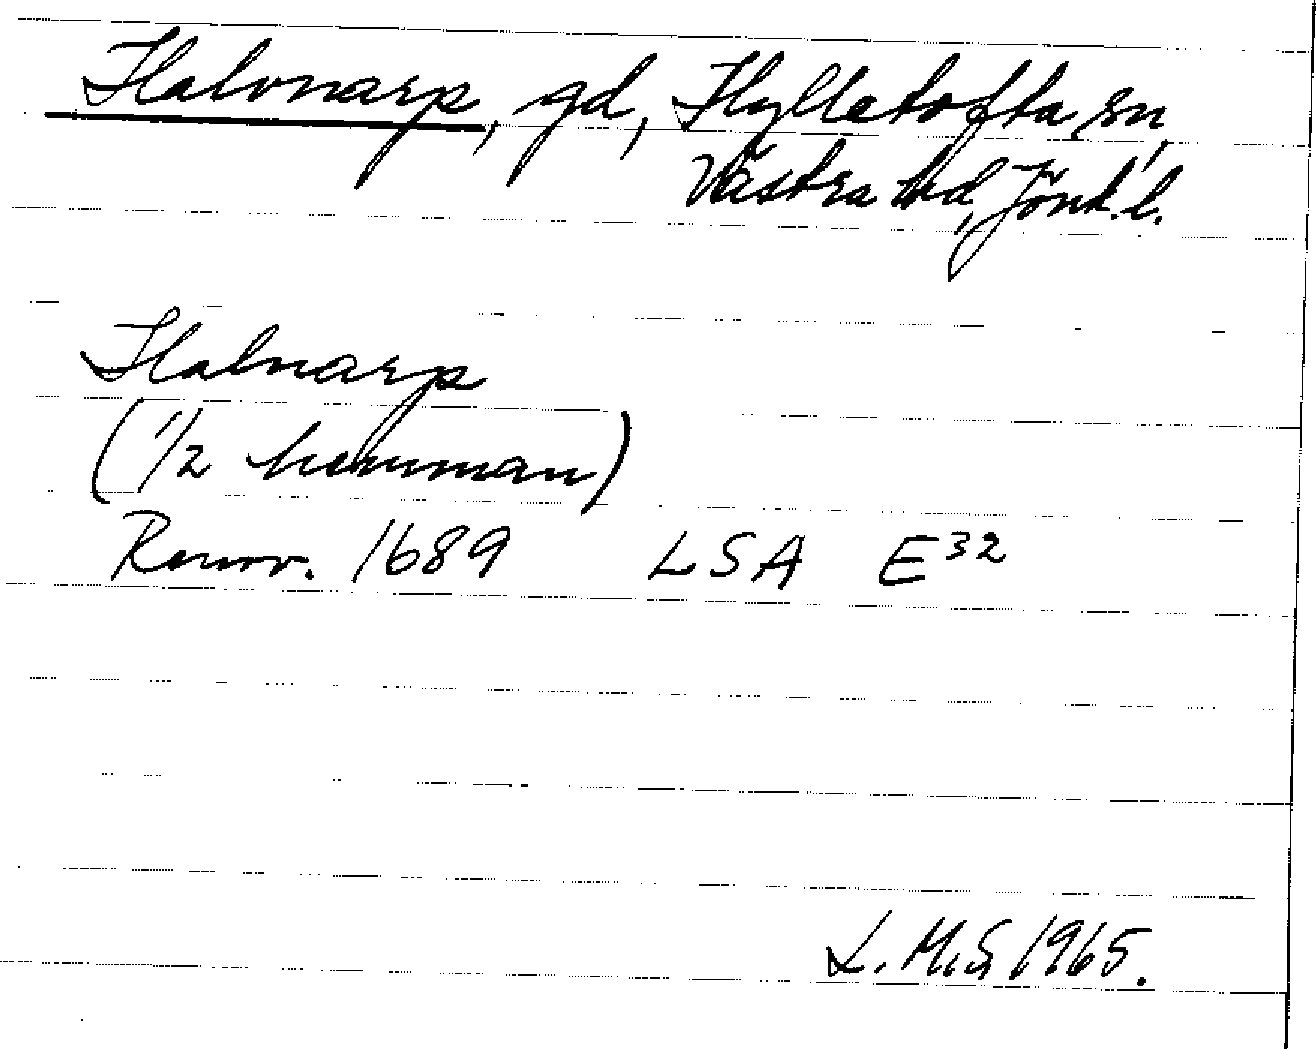 Halvnarp, gd, Hylletofta sn,
Västra hd, Jönk. l.
Halnarp
(1/2 hemman)
Renov. 1689 LSA E32
L. M.S 1965.